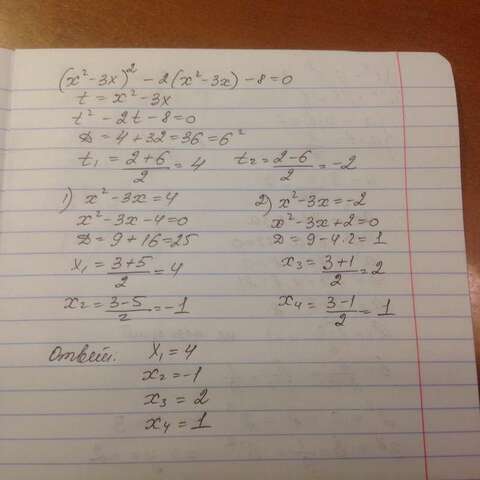 (x²-3x)² - 2(x²-3x) - 8 = 0
t = x²-3x
t² - 2t - 8 = 0
D = 4 + 32 = 36 = 6²
t₁ = (2+6)/2 = 4 t₂ = (2-6)/2 = -2
1) x²-3x = 4
x²-3x-4 = 0
D = 9 + 16 = 25
x₁ = (3+5)/2 = 4
x₂ = (3-5)/2 = -1
2) x²-3x = -2
x²-3x+2 = 0
D = 9 - 4·2 = 1
x₃ = (3+1)/2 = 2
x₄ = (3-1)/2 = 1
Ответ. x₁ = 4
x₂ = -1
x₃ = 2
x₄ = 1